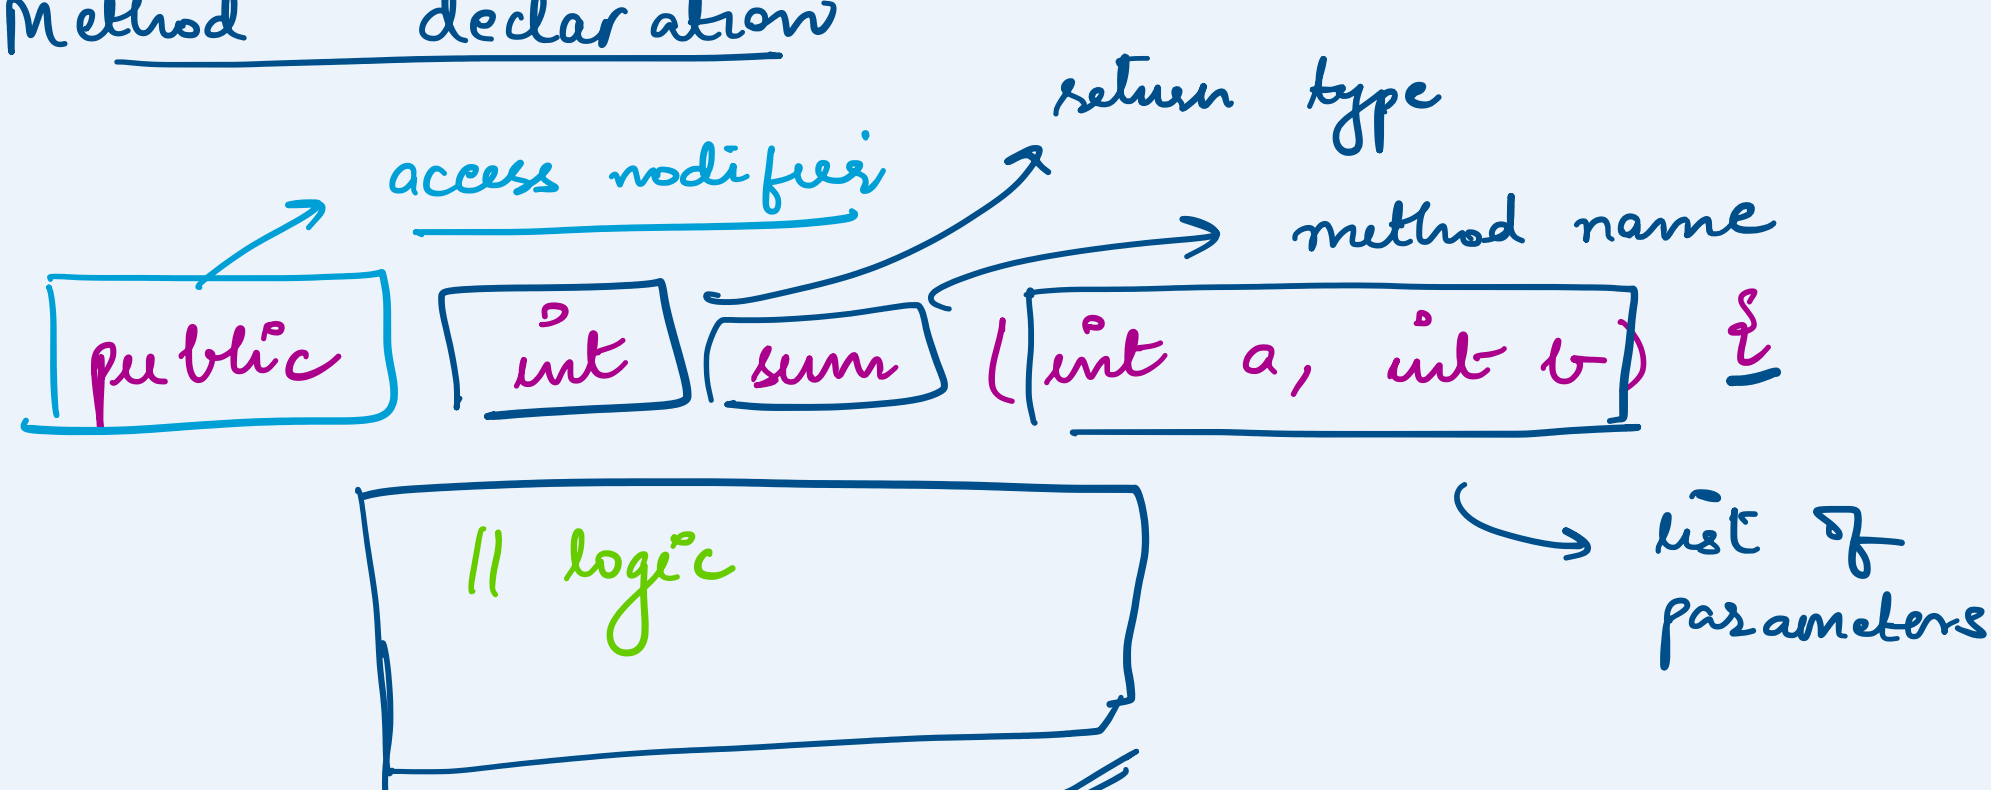 Method declaration
return type
access modifier
method name
public int sum (int a, int b) {
// logic
list of
parameters